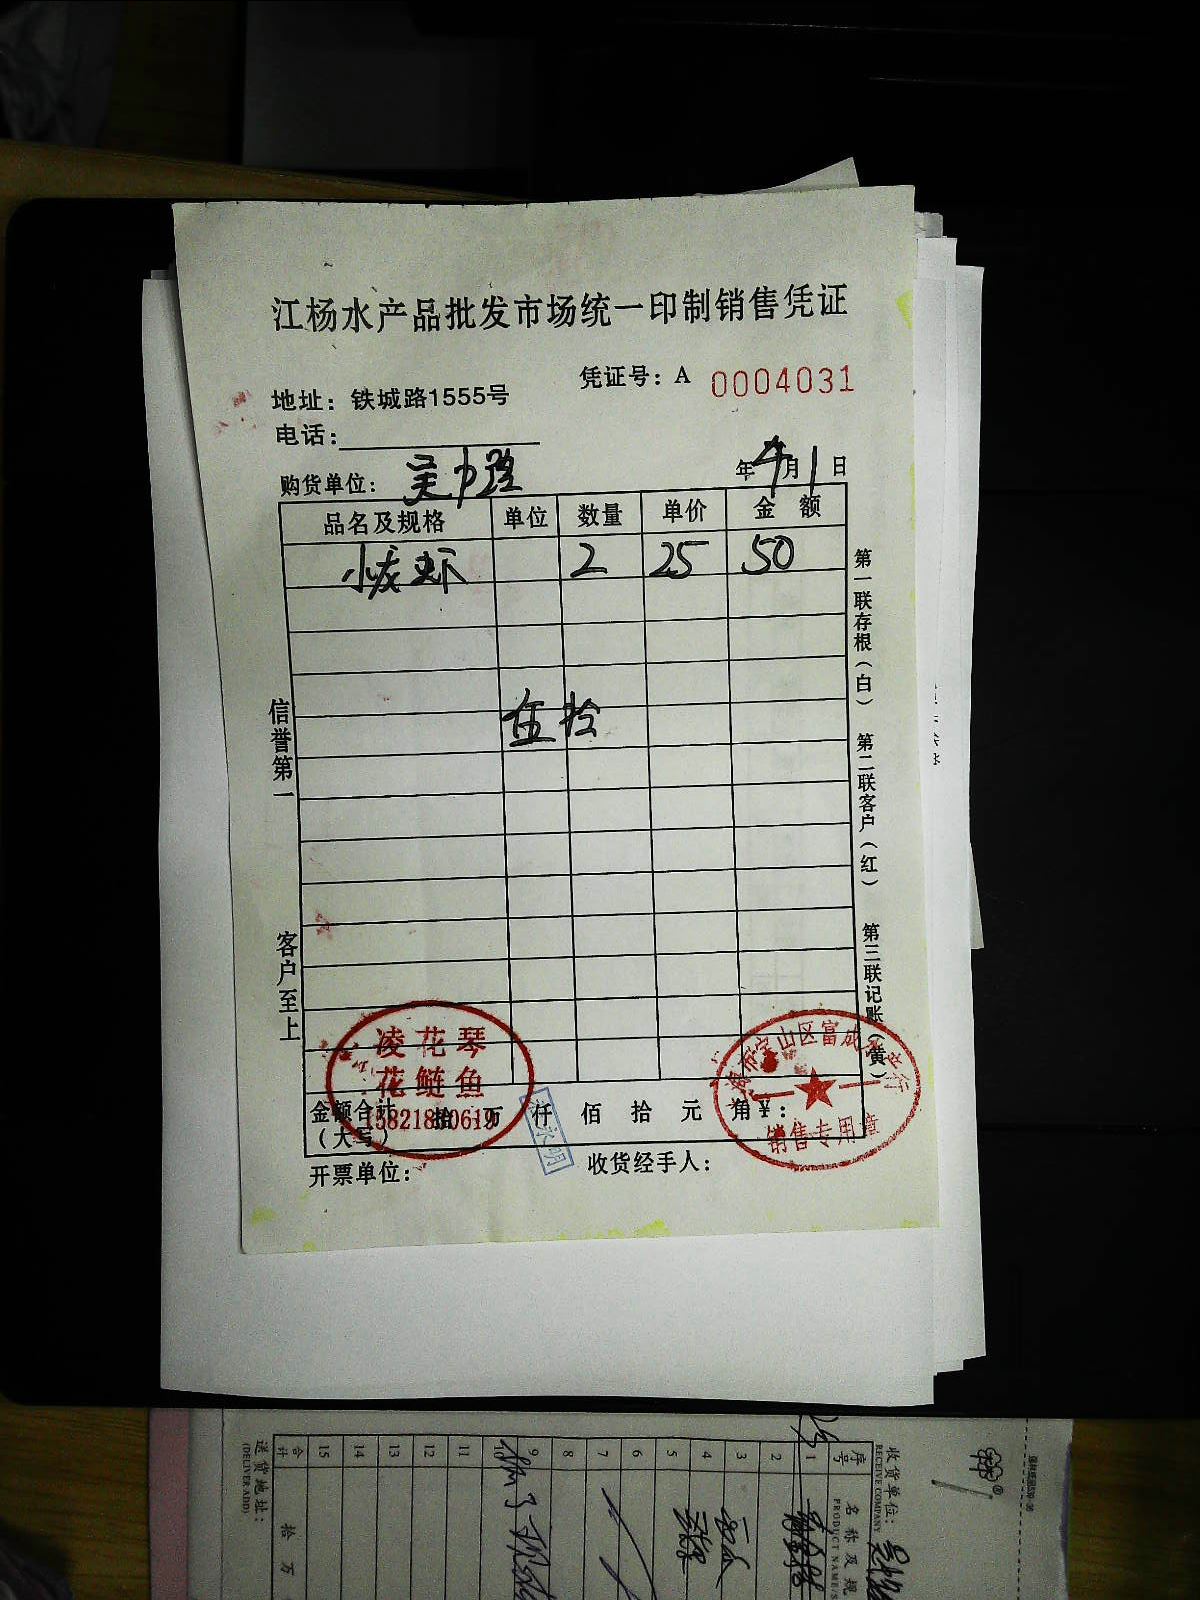 江杨水产品批发市场统一印制销售凭证
凭证号：A 0004031
地址：铁城路1555号
电话：
购货单位： 吴中路 年 4月 1日
品名及规格 单位 数量 单价 金额
小龙虾 2 25 50
伍拾
信誉第一
客户至上
第一联存根（白） 第二联客户（红） 第三联记账（黄）
凌花琴
花鲢鱼
金额合计 拾 万 仟 佰 拾 元 角 ￥：
（大写）
销售专用章
开票单位： 收货经手人：
收货单位：
RECEIVE COMPANY
序号 名称及规
PRODUCT NAME/S
1
2
3
4
5
6
7
8
9
10
11
12
13
14
15
合计 拾 万
送货地址：
(DELIVER ADD)